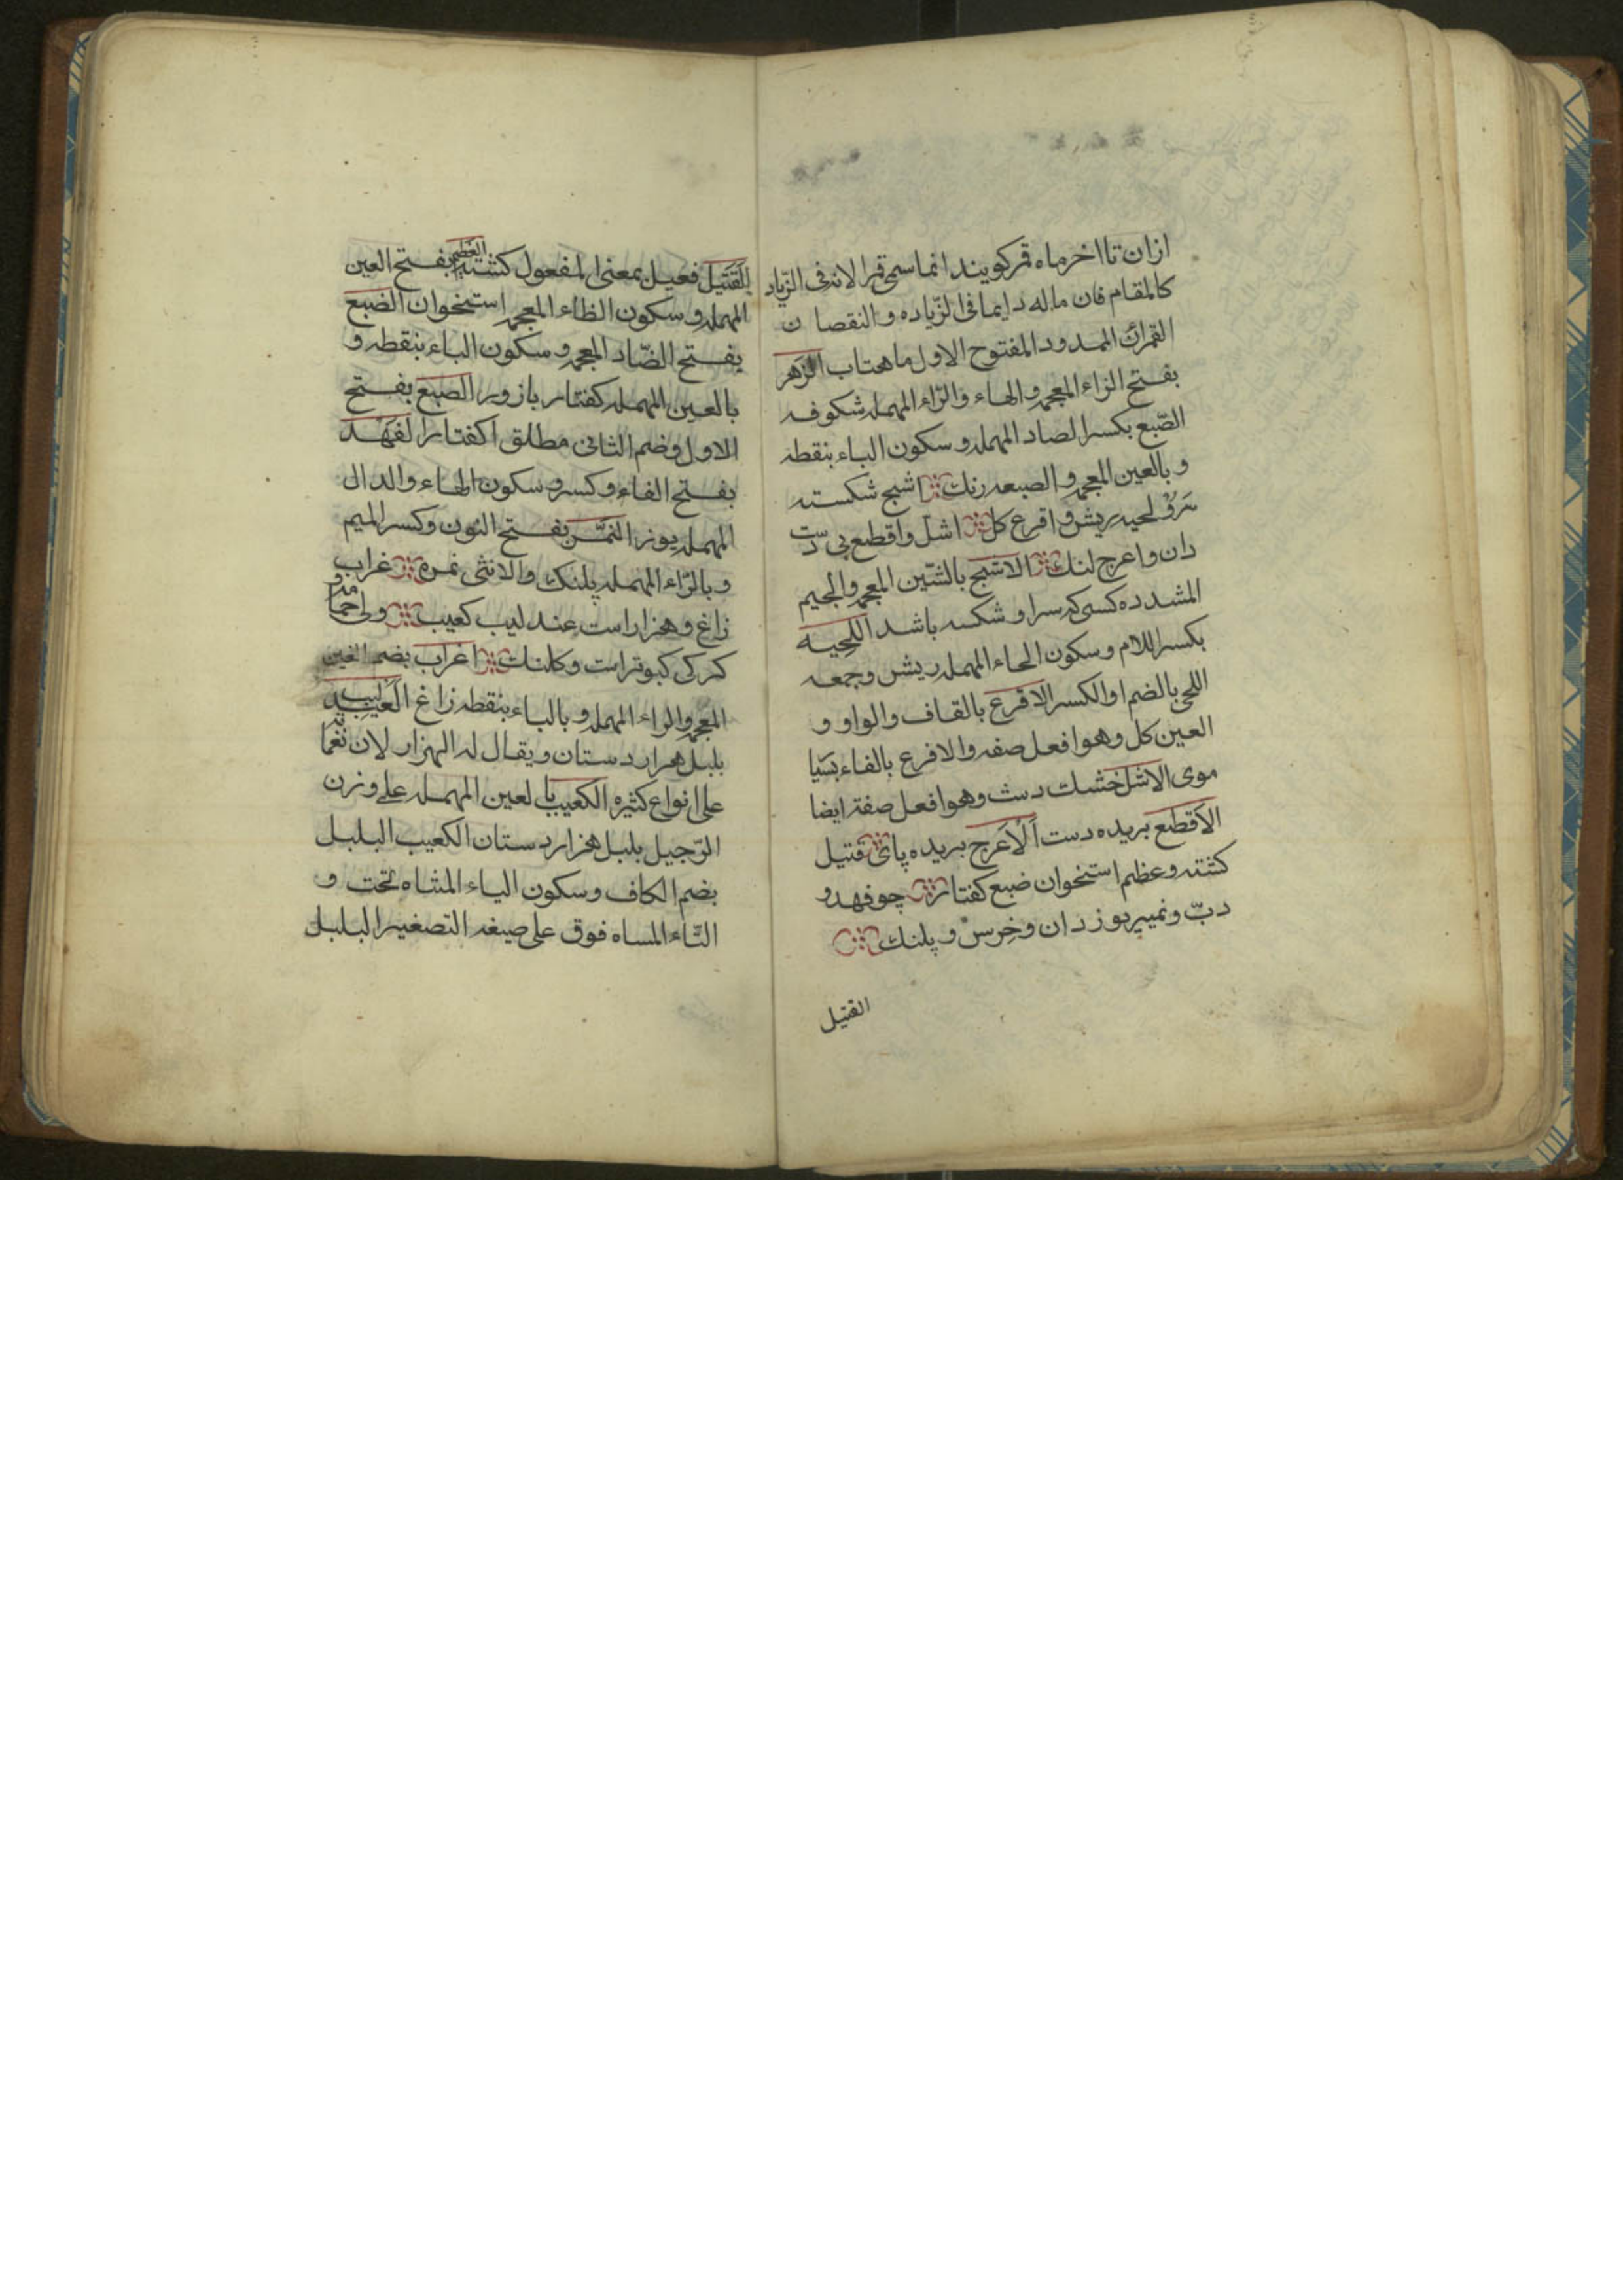 ازان تا اخر ماه قمر کویند انما سمی قمرا لانه فی الزیاد
کالمقام فان ماله دایما فی الزیاده و النقصان
القمراء الممدود المفتوح الاول ماهتاب الزهر
بفتح الزاء المعجمه و الهاء والراء المهمله شکوفه
الصبع بکسر الصاد المهمله و سکون الباء بنقطه
و بالعین المعجمه و الصبعه رنك اشبح شکسته
سرو لحیه ریش و اقرع کل اشل و اقطع بی دست
دان و اعرج لنك الاشبح بالشین المعجمه والجیم
المشدده کسی که سر او شکسه باشد اللحیه
بکسر اللام و سکون الحاء المهمله ریش و جمعه
اللحی بالضم او الکسر الاقرع بالقاف والواو و
العین کل وهو افعل صفه والافرع بالفاء بسیا
موی الاشل خشك دست وهو افعل صفته ایضا
الاقطع بریده دست الاعرج بریده پای قتیل
کشته و عظم استخوان ضبع کفتار چو فهد و
دب و نمیر یوز دان و خرس و پلنك
القتیل
القتیل فعیل بمعنی المفعول کشته العظم بفتح العین
المهمله و سکون الظاء المعجمه استخوان الضبع
بفتح الضاد المعجمه و سکون الباء بنقطه و
بالعین المهمله کفتار باز ور الصبع بفتح
الاول وضم الثانی مطلق اکفتار الفهد
بفتح الفاء و کسر و سکون الهاء والدال
المهمله یوز النمر بفتح النون و کسر المیم
و بالراء المهمله پلنك والانثی نمره غراب
زاغ و هزار است عندلیب کعیب ولی حمامه و
کرکی کبوتر است و کلنك اغراب بضم الغین
المعجمه والراء المهمله و بالباء بنقطه زاغ العندلیب
بلبل هرار دستان ویقال له الهزار لان نغماته
علی انواع کثیره الکعیب بالعین المهمله علی وزن
الرجیل بلبل هزار دستان الکعیب البلبل
بضم الکاف و سکون الیاء المثناه تحت و
التاء المساه فوق علی صیغه التصغیر البلبل